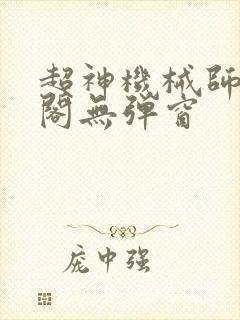 超神機械師
閣無彈窗
庞中强